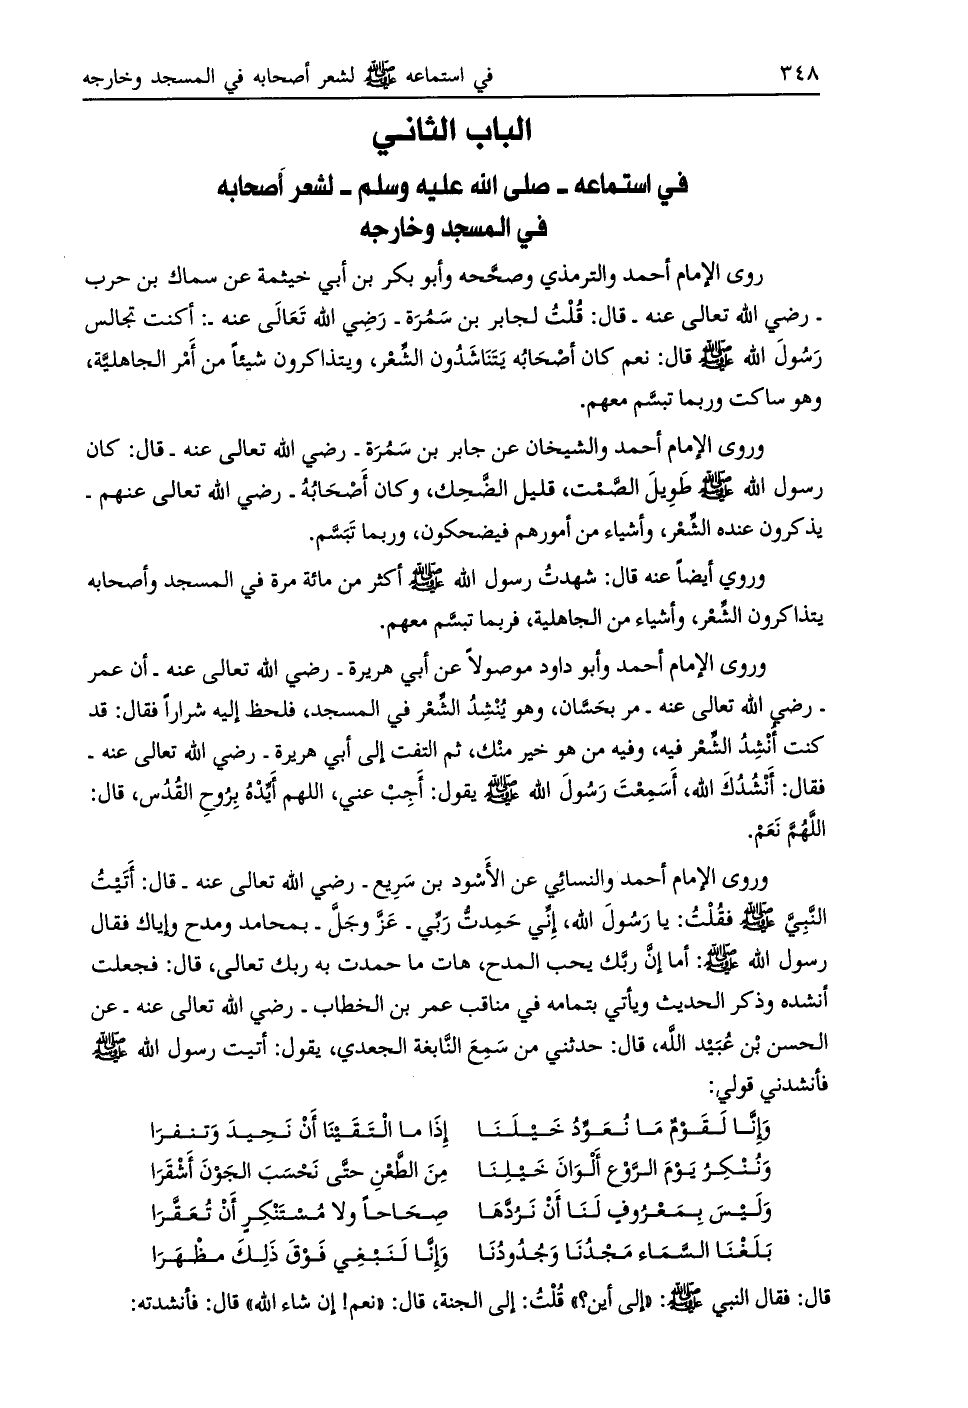 ٣٤٨ في استماعه ﷺ لشعر أصحابه في المسجد وخارجه
الباب الثاني
في استماعه ـ صلى الله عليه وسلم ـ لشعر أصحابه
في المسجد وخارجه
روى الإمام أحمد والترمذي وصحَّحه وأبو بكر بن أبي خيثمة عن سماك بن حرب
ـ رضي الله تعالى عنه ـ قال: قُلْتُ لجابر بن سَمُرَة ـ رَضِي الله تَعَالَى عنه ـ: أكنت تجالس
رَسُولَ الله ﷺ قال: نعم كان أصْحَابُه يَتَنَاشَدُون الشِّعْر، ويتذاكرون شيئاً من أَمْر الجاهليَّة،
وهو ساكت وربما تبسَّم معهم.
وروى الإمام أحمد والشيخان عن جابر بن سَمُرَة ـ رضي الله تعالى عنه ـ قال: كان
رسول الله ﷺ طَوِيلَ الصَّمْت، قليل الضَّحِك، وكان أَصْحَابُهُ ـ رضي الله تعالى عنهم ـ
يذكرون عنده الشِّعْر، وأشياء من أمورهم فيضحكون، وربما تَبَسَّم.
وروي أيضاً عنه قال: شهدتُ رسول الله ﷺ أكثر من مائة مرة في المسجد وأصحابه
يتذاكرون الشِّعْر، وأشياء من الجاهلية، فربما تبسَّم معهم.
وروى الإمام أحمد وأبو داود موصولاً عن أبي هريرة ـ رضي الله تعالى عنه ـ أن عمر
ـ رضي الله تعالى عنه ـ مر بحَسَّان، وهو يُنْشِدُ الشِّعْر في المسجد، فلحظ إليه شراراً فقال: قد
كنت أُنْشِدُ الشِّعْر فيه، وفيه من هو خير منْك، ثم التفت إلى أبي هريرة ـ رضي الله تعالى عنه ـ
فقال: أَنْشُدُكَ الله، أَسَمِعْتَ رَسُولَ الله ﷺ يقول: أَجِبْ عني، اللهم أَيِّدْهُ بِرُوحِ القُدُس، قال:
اللَّهُمَّ نَعَمْ.
وروى الإمام أحمد والنسائِي عن الأَسْود بن سَرِيع ـ رضي الله تعالى عنه ـ قال: أَتَيْتُ
النَّبِيَّ ﷺ فقُلْتُ: يا رَسُولَ الله، إِنِّي حَمِدتُّ رَبِّي ـ عَزَّ وَجَلَّ ـ بمحامد ومدح وإياك فقال
رسول الله ﷺ: أما إنَّ ربَّك يحب المدح، هات ما حمدت به ربك تعالى، قال: فجعلت
أنشده وذكر الحديث ويأتي بتمامه في مناقب عمر بن الخطاب ـ رضي الله تعالى عنه ـ عن
الحسن بْن عُبَيْد اللَّه، قال: حدثني من سَمِعَ النَّابغة الجعدي، يقول: أتيت رسول الله ﷺ
فأنشدني قولي:
وَإِنَّا لَقَوْمٌ مَا نُعَوِّدُ خَيْلَنَا إِذَا ما الْتَقَيْنَا أَنْ نَحِيدَ وَتنفرَا
وَنُنْكِرُ يَوْمَ الرَّوْعِ أَلْوَانَ خَيْلِنَا مِنَ الطَّعْنِ حتَّى نَحْسَبَ الجَوْنَ أَشْقَرَا
وَلَيْسَ بِمَعْرُوفٍ لَنَا أَنْ نَرُدَّهَا صِحَاحاً ولا مُسْتَنْكِرٍ أَنْ تُعَقَّرَا
بَلَغْنَا السَّمَاء مَجْدُنَا وَجُدُودُنَا وَإِنَّا لَنَبْغِي فَوْقَ ذَلِكَ مظْهَرَا
قال: فقال النبي ﷺ: «إلى أين؟» قُلْتُ: إلى الجنة، قال: «نعم! إن شاء الله» قال: فأنشدته: